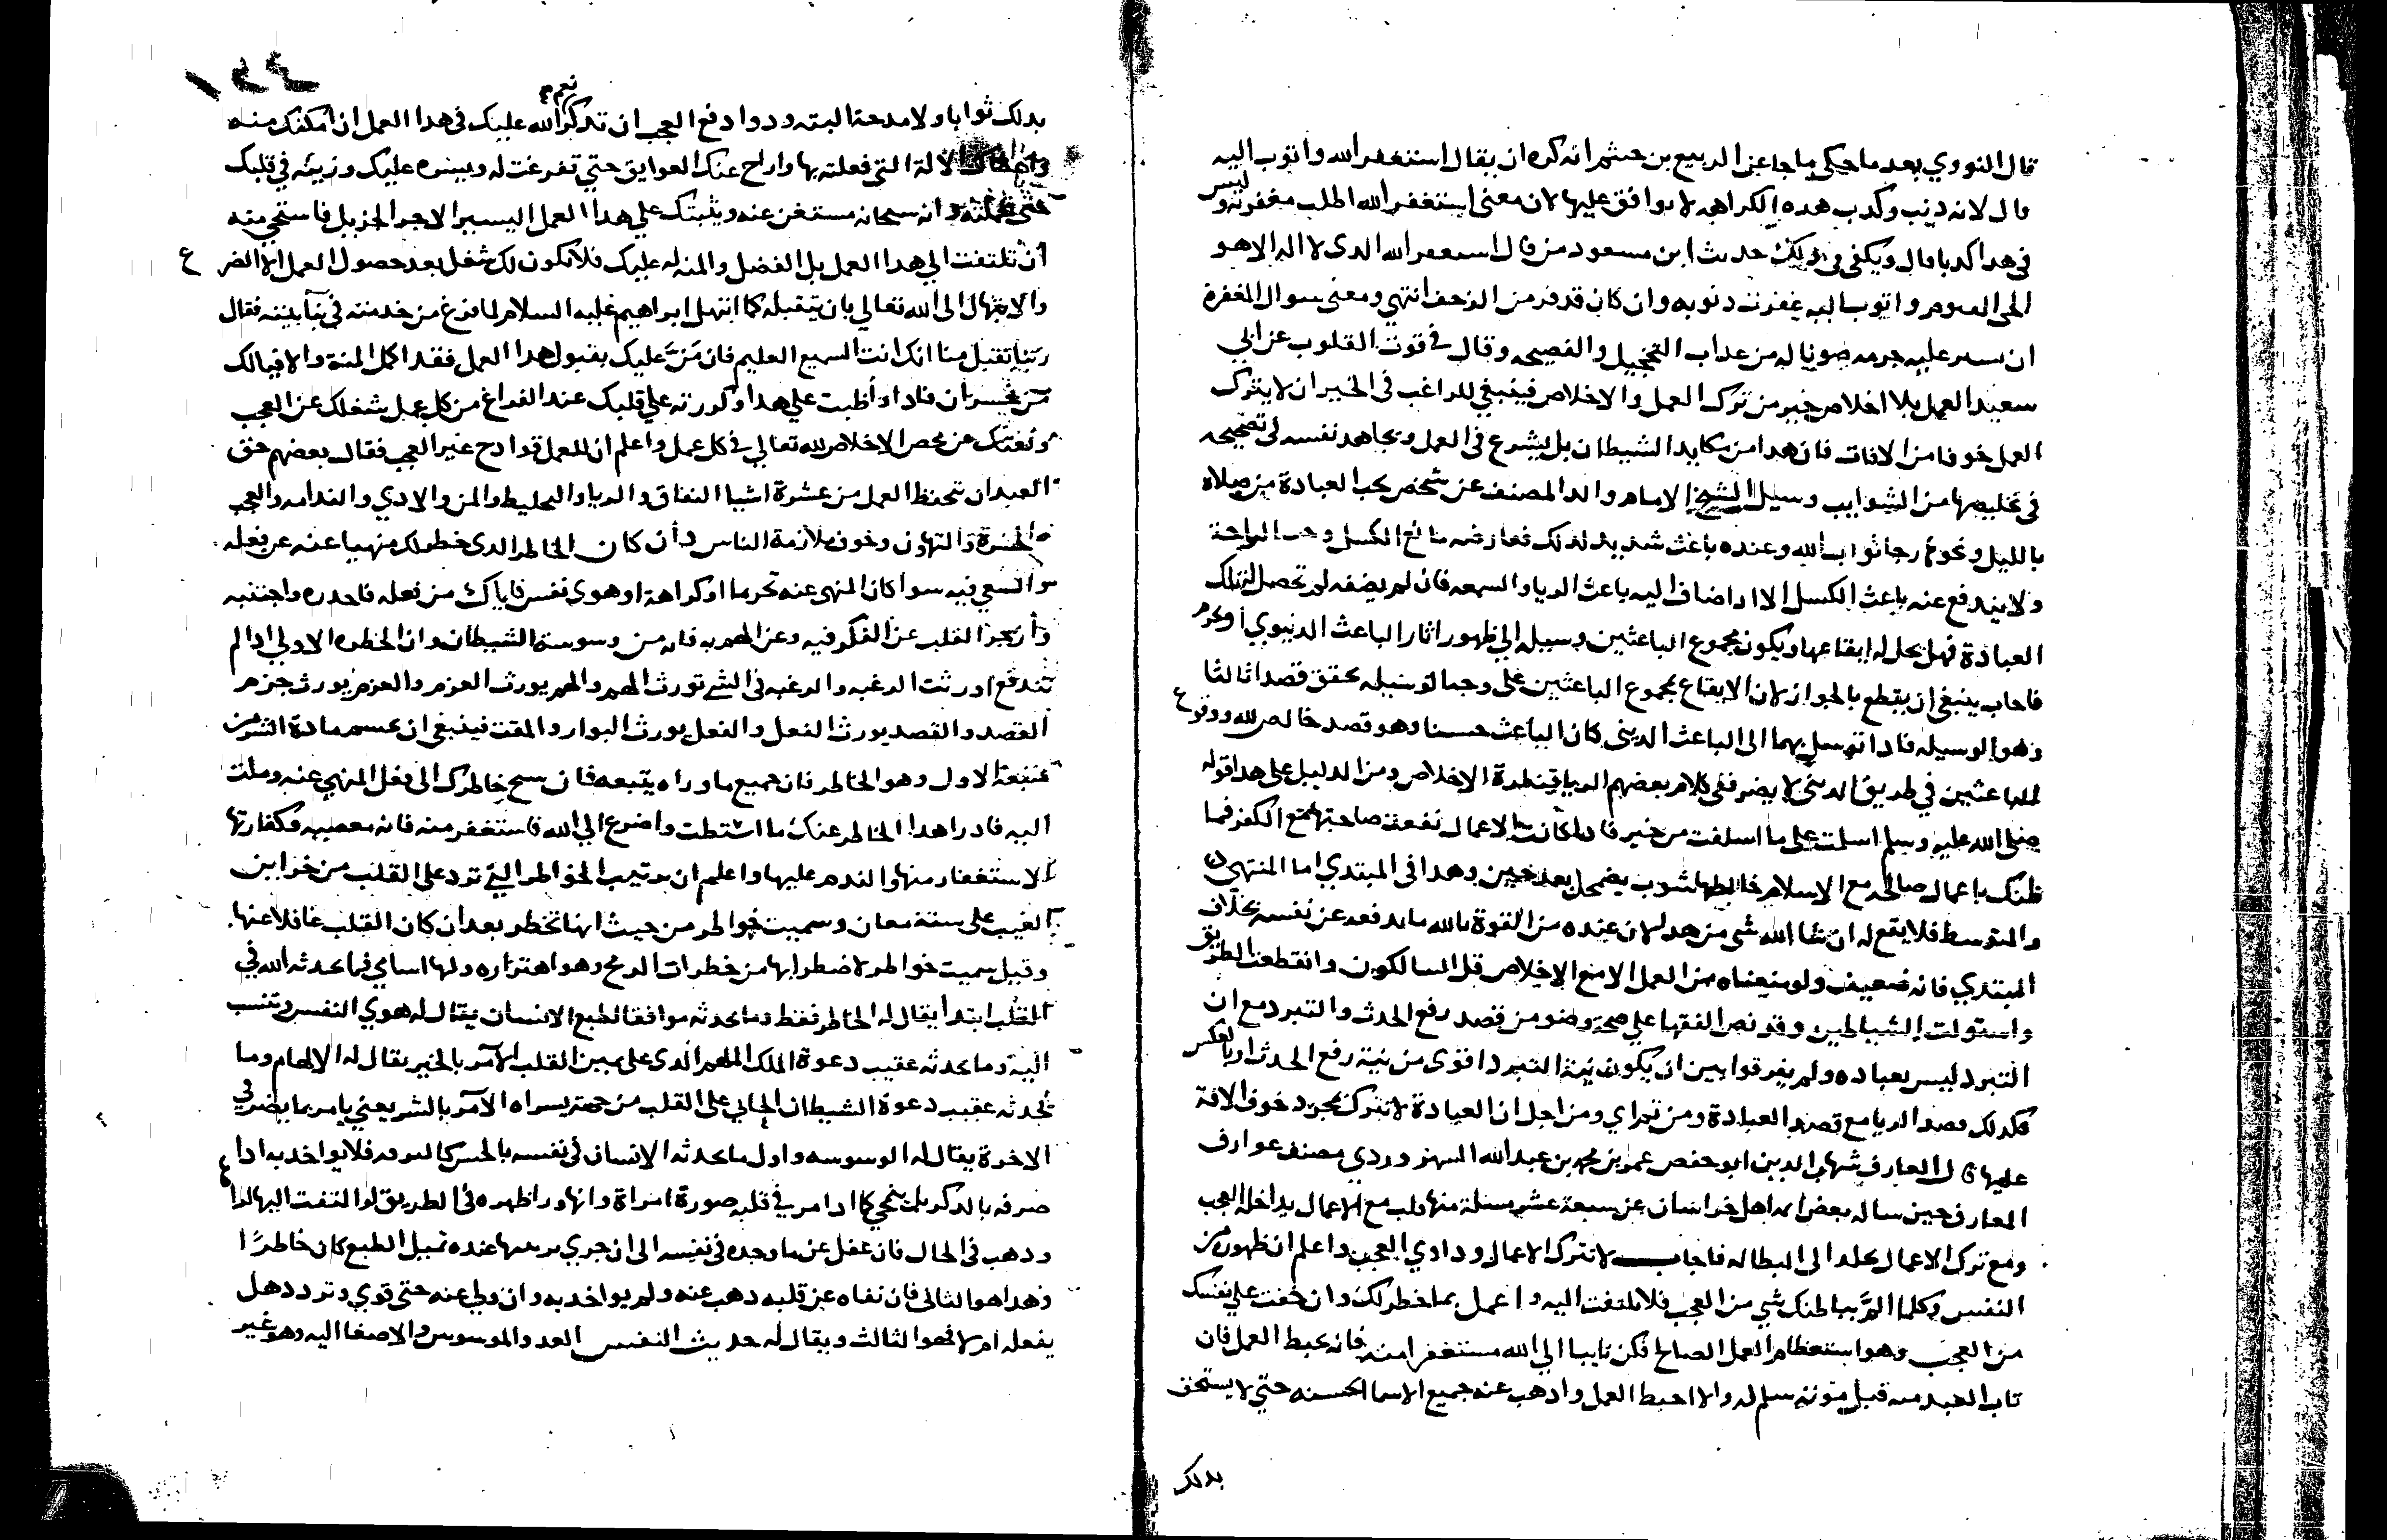 قال النووي بعد ما حكي ما جا عن الربيع بن خثيم انه كره ان يقال استغفر الله واتوب اليه
قال لانه ذنب وكذب هذه الكراهه لا نوافق عليها لان معنى استغفر الله اطلب مغفرته وليس
في هذا كذبا قال ويكفي في ذلك حديث ابن مسعود من قال استغفر الله الذي لا اله الا هو
الحي القيوم واتوب اليه غفرت ذنوبه وان كان قد فر من الزحف انتهي ومعنى سوال المغفرة
ان يستر عليه جرمه صونا له من عذاب التخجيل والفضيحه وقال في قوت القلوب عن ابي
سعيد العمل بلا اخلاص خير من ترك العمل والاخلاص فينبغي للراغب في الخير ان لا يترك
العمل خوفا من الافات فان هذا من مكايد الشيطان بل يشرع في العمل ويجاهد نفسه في تصحيحه
في تخليصها من الشوايب وسيل الشيخ الامام والد المصنف عن شخص يحب العبادة من صلاة
بالليل ونحوها رجا ثواب الله وعنده باعث شديد لذلك فعارضه مانع الكسل وحب الراحة
ولا يندفع عنه باعث الكسل الا اذا ضاف اليه باعث الريا والسمعه فان لم يضفه لم تحصل له تلك
العبادة فهل يحل له ايقاعها ويكون مجموع الباعثين وسيله الي ظهور اثار الباعث الدنيوي او يحرم
فاجاب ينبغي ان يقطع بالجواز لان الايقاع بمجموع الباعثين على وجه التوسيله يحقق قصدا ثالثا
وهو الوسيله فاذا توسل بهما الى الباعث الديني كان الباعث حسنا وهو قصد خالص لله ووقوع
الباعثين في طريق الديني لا يضر ففي كلام بعضهم الريا قنطرة الاخلاص ومن الدليل على هذا قوله
صلى الله عليه وسلم اسلمت على ما اسلفت من خير فاذا كانت الاعمال نفعت صاحبها مع الكفر فما
ظنك باعمال صالحه مع الاسلام خالطها شوب يضمحل بعد حين وهذا في المبتدي اما المنتهي
والمتوسط فلا يقع له ان شا الله شي من هذا لان عنده من القوة بالله ما يدفعه عن نفسه بخلاف
المبتدي فانه ضعيف ولو منعناه من العمل الا مع الاخلاص قل السالكون وانقطعت الطريق
واستولت الشياطين وقد نص الفقها على صحة وضو من قصد رفع الحدث والتبرد مع ان
التبرد ليس بعباده ولم يفرقوا بين ان يكون نية التبرد اقوى من نية رفع الحدث او بالعكس
فكذلك قصد الريا مع قصد العبادة ومن تراي ومن اجل ان العبادة لا تترك بمجرد خوف الافة
عليها قال العارف شهاب الدين ابو حفص عمر بن محمد بن عبد الله السهروردي مصنف عوارف
المعارف حين ساله بعض ايمة اهل خراسان عن سبعة عشر مسئلة منها قلب مع الاعمال يداخله العجب
ومع ترك الاعمال يخلد الى البطاله فاجاب لا تترك الاعمال وداوي العجب واعلم ان ظهوره من
النفس وكلما الم بباطنك شي من العجب فلا تلتفت اليه واعمل بما خطر لك وان خفت على نفسك
من العجب وهو استعظام العمل الصالح فكن تايبا الى الله مستغفرا منه فانه يحبط العمل فان
تاب العبد منه قبل موته سلم له والا احبط العمل واذهب عنه جميع الاسما الحسنه حتي لا يستحق
بذلك
بذلك ثوابا ولا مدحة البته ودوا دفع العجب ان تذكر نعم الله عليك في هذا العمل ان امكنك منه
واعطاك الالة التي فعلته بها وازاح عنك العوايق حتي تفرغت له ويسره عليك وزينه في قلبك
حتى عملته وانه سبحانه مستغن عنه ويثبتك علي هذا العمل اليسير الاجر الجزيل فاستحي منه
ان تلتفت الي هذا العمل بل الفضل والمنه له عليك فلا يكون لك شغل بعد حصول العمل الا الضرع
والابتهال الى الله تعالي بان يتقبله كما ابتهل ابراهيم عليه السلام لما فرغ من خدمته في بنا بيته فقال
ربنا تقبل منا انك انت السميع العليم فان من عليك بقبول هذا العمل فقد اكمل المنة والا فيالك
من خسران فاذا واظبت على هذا وكررته علي قلبك عند الفراغ من كل عمل شغلك عن العجب
وبعثك من محض الاخلاص لله تعالي في كل عمل واعلم ان للعمل قوادح غير العجب فقال بعضهم حق
العبد ان تحفظ العمل من عشرة اشيا النفاق والريا والتخليط والمن والاذي والندامه والعجب
والحسرة والتهاون وخوف ملازمة الناس وان كان الخاطر الذي خطر لك منهيا عنه عن فعله
والسعي فيه سوا كان المنهي عنه تحرما او كراهة او هوى نفس فاياك من فعله فاحذره واجتنبه
وازجر القلب عن الفكر فيه وعن الهم به فانه من وسوسة الشيطان وان الخطره الاولي اذا لم
تندفع اورثت الرغبه والرغبه في الشي تورث الهم والهم يورث العزم والعزم يورث جزم
القصد والقصد يورث الفعل والفعل يورث البوار والمقت فينبغي ان تحسم مادة الشر من
منبعه الاول وهو الخاطر فان جميع ما وراه يتبعه فان سبح خاطرك الى فعل المنهي عنه وملت
اليه فادرا هذا الخاطر عنك ما استطعت واضرع الي الله فاستغفر منه فانه معصيه وكفارتها
الاستغفار منها والندم عليها واعلم ان مرتيب الخواطر التي ترد على القلب من خزاين
الغيب على ستة معان وسميت خواطر من حيث انها تخطر بعد ان كان القلب غافلا عنها
وقيل سميت خواطر لاضطرابها من خطرات الرمح وهو اهتزازه ولها اسامي فما يحدثه الله في
القلب ابتدا يقال له الخاطر فقط وما يحدثه موافقا لطبع الانسان يقال له هوي النفس وتنسب
اليه وما يحدثه عقيب دعوة الملك الملهم الذي على يمين القلب الآمر بالخير يقال له الالهام وما
يحدثه عقيب دعوة الشيطان الجاني على القلب من جهة يسراه الآمر بالشر يعني يامر بما يضر في
الاخرة يقال له الوسوسه واول ما يحدثه الانسان في نفسه بالحس كالبرقه فلا يواخذ به اذا
صرفه بالذكر بل ينمحي كما اذا مر في قلبه صورة امراة وانها ورا ظهره في الطريق لو التفت اليها لراها
وذهب في الحال فان غفل عن ما وجده في نفسه الى ان جري عنده تميل الطبع كان خاطرا
وهذا هو الثاني فان نفاه عن قلبه ذهب عنه ولم يواخذ به وان ولي عنه حتى قوي وتردد هل
يفعله ام لا فهو الثالث ويقال له حديث النفس العدو الموسوس والاصغا اليه وهو غير